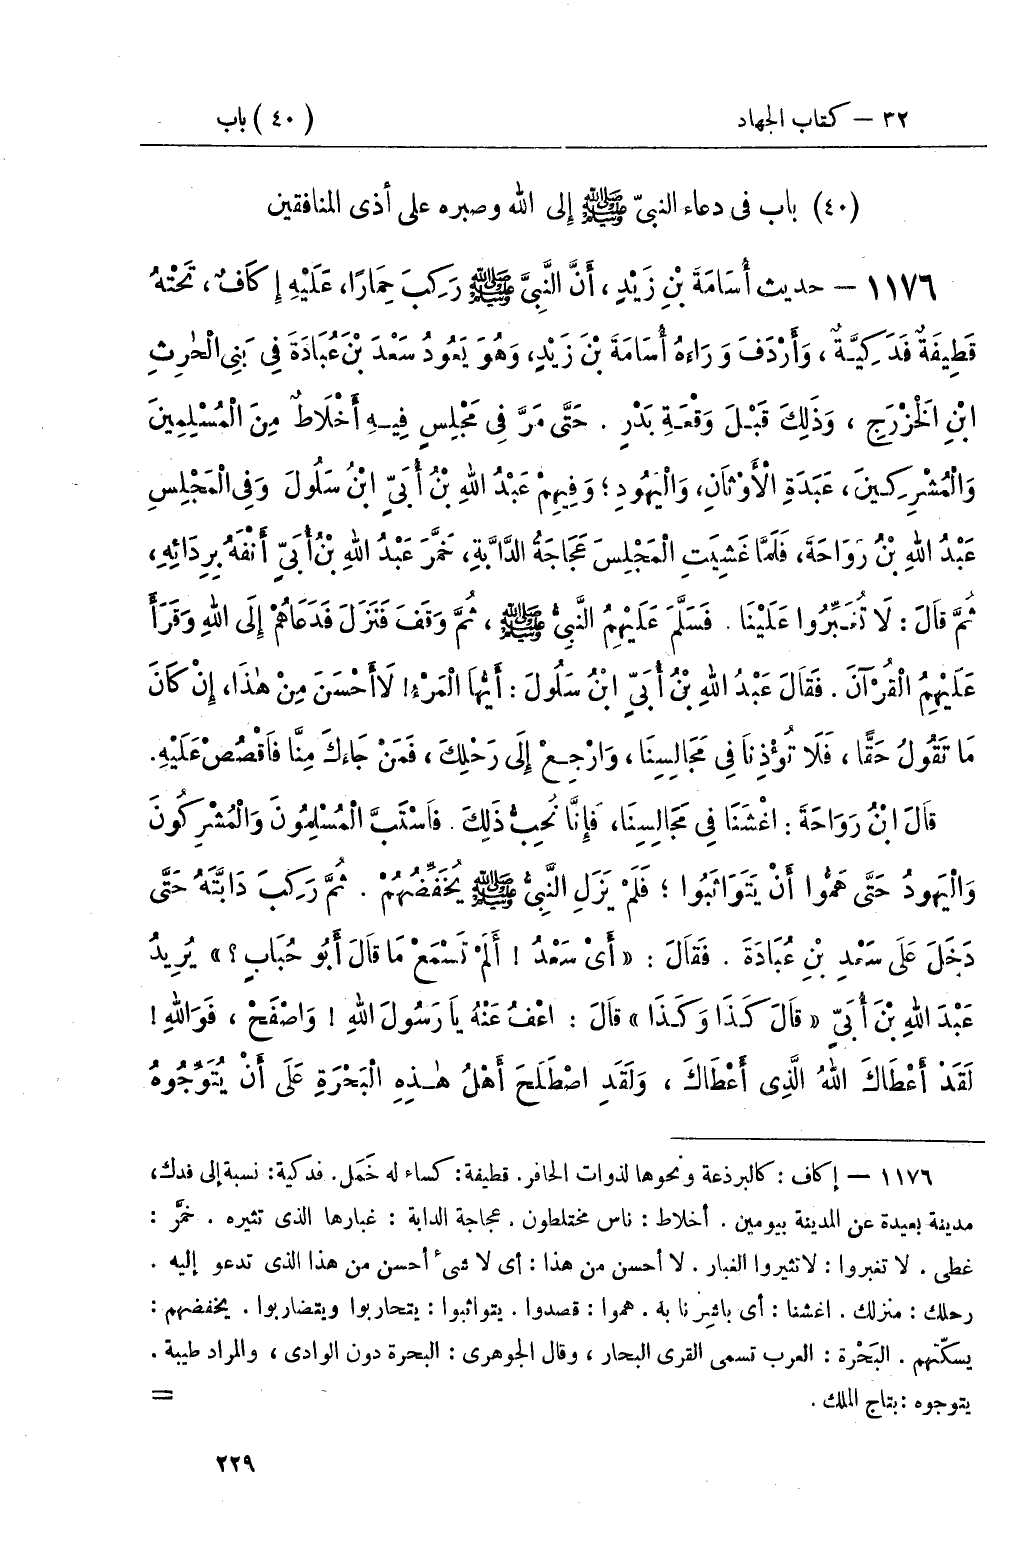 ٣٢ – كتاب الجهاد (٤٠) باب
(٤٠) باب فى دعاء النبىّ ﷺ إلى الله وصبره على أذى المنافقين
١١٧٦ – حديث أُسَامَةَ بْنِ زَيْدٍ ، أَنَّ النَّبِىَّ ﷺ رَكِبَ حِمَارًا، عَلَيْهِ إِكَافٌ ، تَحْتَهُ
قَطِيفَةٌ فَدَكِيَّةٌ ، وَأَرْدَفَ وَرَاءَهُ أُسَامَةَ بْنَ زَيْدٍ، وَهُوَ يَعُودُ سَعْدَ بْنَ عُبَادَةَ فِى بَنِى الْحَرِثِ
ابْنِ الْخَزْرَجِ ، وَذَلِكَ قَبْلَ وَقْعَةِ بَدْرٍ . حَتَّى مَرَّ فِى مَجْلِسٍ فِيهِ أَخْلَاطٌ مِنَ الْمُسْلِمِينَ
وَالْمُشْرِكِينَ ، عَبَدَةِ الْأَوْثَانِ، وَالْيَهُودِ ؛ وَفِيهِمْ عَبْدُ اللهِ بْنُ أُبَىٍّ ابْنُ سَلُولَ وَفِى الْمَجْلِسِ
عَبْدُ اللهِ بْنُ رَوَاحَةَ، فَلَمَّا غَشِيَتِ الْمَجْلِسَ عَجَاجَةُ الدَّابَّةِ، خَمَّرَ عَبْدُ اللهِ بْنُ أُبَىٍّ أَنْفَهُ بِرِدَائِهِ،
ثُمَّ قَالَ : لَا تُغَبِّرُوا عَلَيْنَا . فَسَلَّمَ عَلَيْهِمُ النَّبِىُّ ﷺ ، ثُمَّ وَقَفَ فَنَزَلَ فَدَعَاهُمْ إِلَى اللهِ وَقَرَأَ
عَلَيْهِمُ الْقُرْآنَ . فَقَالَ عَبْدُ اللهِ بْنُ أُبَىٍّ ابْنُ سَلُولَ : أَيُّهَا الْمَرْءُ! لَا أَحْسَنَ مِنْ هٰذَا، إِنْ كَانَ
مَا تَقُولُ حَقًّا ، فَلَا تُؤْذِنَا فِى مَجَالِسِنَا ، وَارْجِعْ إِلَى رَحْلِكَ ، فَمَنْ جَاءَكَ مِنَّا فَاقْصُصْ عَلَيْهِ.
قَالَ ابْنُ رَوَاحَةَ : اغْشَنَا فِى مَجَالِسِنَا، فَإِنَّا نُحِبُّ ذَلِكَ . فَاسْتَبَّ الْمُسْلِمُونَ وَالْمُشْرِكُونَ
وَالْيَهُودُ حَتَّى هَمُّوا أَنْ يَتَوَاثَبُوا ؛ فَلَمْ يَزَلِ النَّبِىُّ ﷺ يُخَفِّضُهُمْ . ثُمَّ رَكِبَ دَابَّتَهُ حَتَّى
دَخَلَ عَلَى سَعْدِ بْنِ عُبَادَةَ . فَقَالَ : « أَىْ سَعْدُ ! أَلَمْ تَسْمَعْ مَا قَالَ أَبُو حُبَابٍ ؟ » يُرِيدُ
عَبْدَ اللهِ بْنَ أُبَىٍّ « قَالَ كَذَا وَكَذَا » قَالَ : اعْفُ عَنْهُ يَا رَسُولَ اللهِ ! وَاصْفَحْ ، فَوَاللهِ !
لَقَدْ أَعْطَاكَ اللهُ الَّذِى أَعْطَاكَ ، وَلَقَدِ اصْطَلَحَ أَهْلُ هٰذِهِ الْبَحْرَةِ عَلَى أَنْ يُتَوِّجُوهُ
١١٧٦ – إكاف : كالبرذعة ونحوها لذوات الحافر. قطيفة: كساء له خَمَل. فدكية: نسبة إلى فدك،
مدينة بعيدة عن المدينة بيومين . أخلاط : ناس مختلطون . عجاجة الدابة : غبارها الذى تثيره . خمَّر :
غطى . لا تغبروا : لاتثيروا الغبار . لا أحسن من هذا : أى لا شىء أحسن من هذا الذى تدعو إليه .
رحلك : منزلك . اغشنا : أى باشرنا به . هموا : قصدوا . يتواثبوا : يتحاربوا ويتضاربوا . يخفضهم :
يسكّنهم . البَحْرة : العرب تسمى القرى البحار ، وقال الجوهرى : البحرة دون الوادى ، والمراد طيبة .
يتوجوه : بتاج الملك . =
٢٢٩